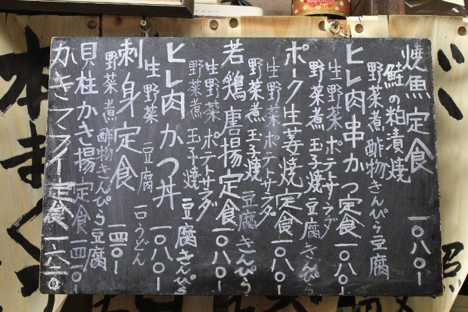 焼魚定食 一〇八〇一
鮭の粕漬焼
野菜煮 酢物 きんぴら 豆腐
ヒレ肉串かつ定食 一〇八〇一
生野菜 ポテトサラダ
野菜煮 玉子焼 豆腐 きんぴら
ポーク生姜焼定食 一〇八〇一
生野菜 ポテトサラダ
野菜煮 玉子焼 豆腐 きんぴら
若鶏唐揚定食 一〇八〇一
生野菜 ポテトサラダ
野菜煮 玉子焼 豆腐 きんぴら
ヒレ肉かつ丼 一〇八〇一
生野菜 豆腐 一口うどん
刺身定食 一一四〇一
野菜煮 酢物 きんぴら 豆腐
貝柱かき揚定食 一一四〇一
かきフライ定食 一六二〇一
本まぐ